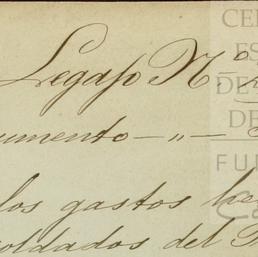 Legajo N.º
umento — " —
los gastos he
oldados del
CE
ES
DE
DE
FU